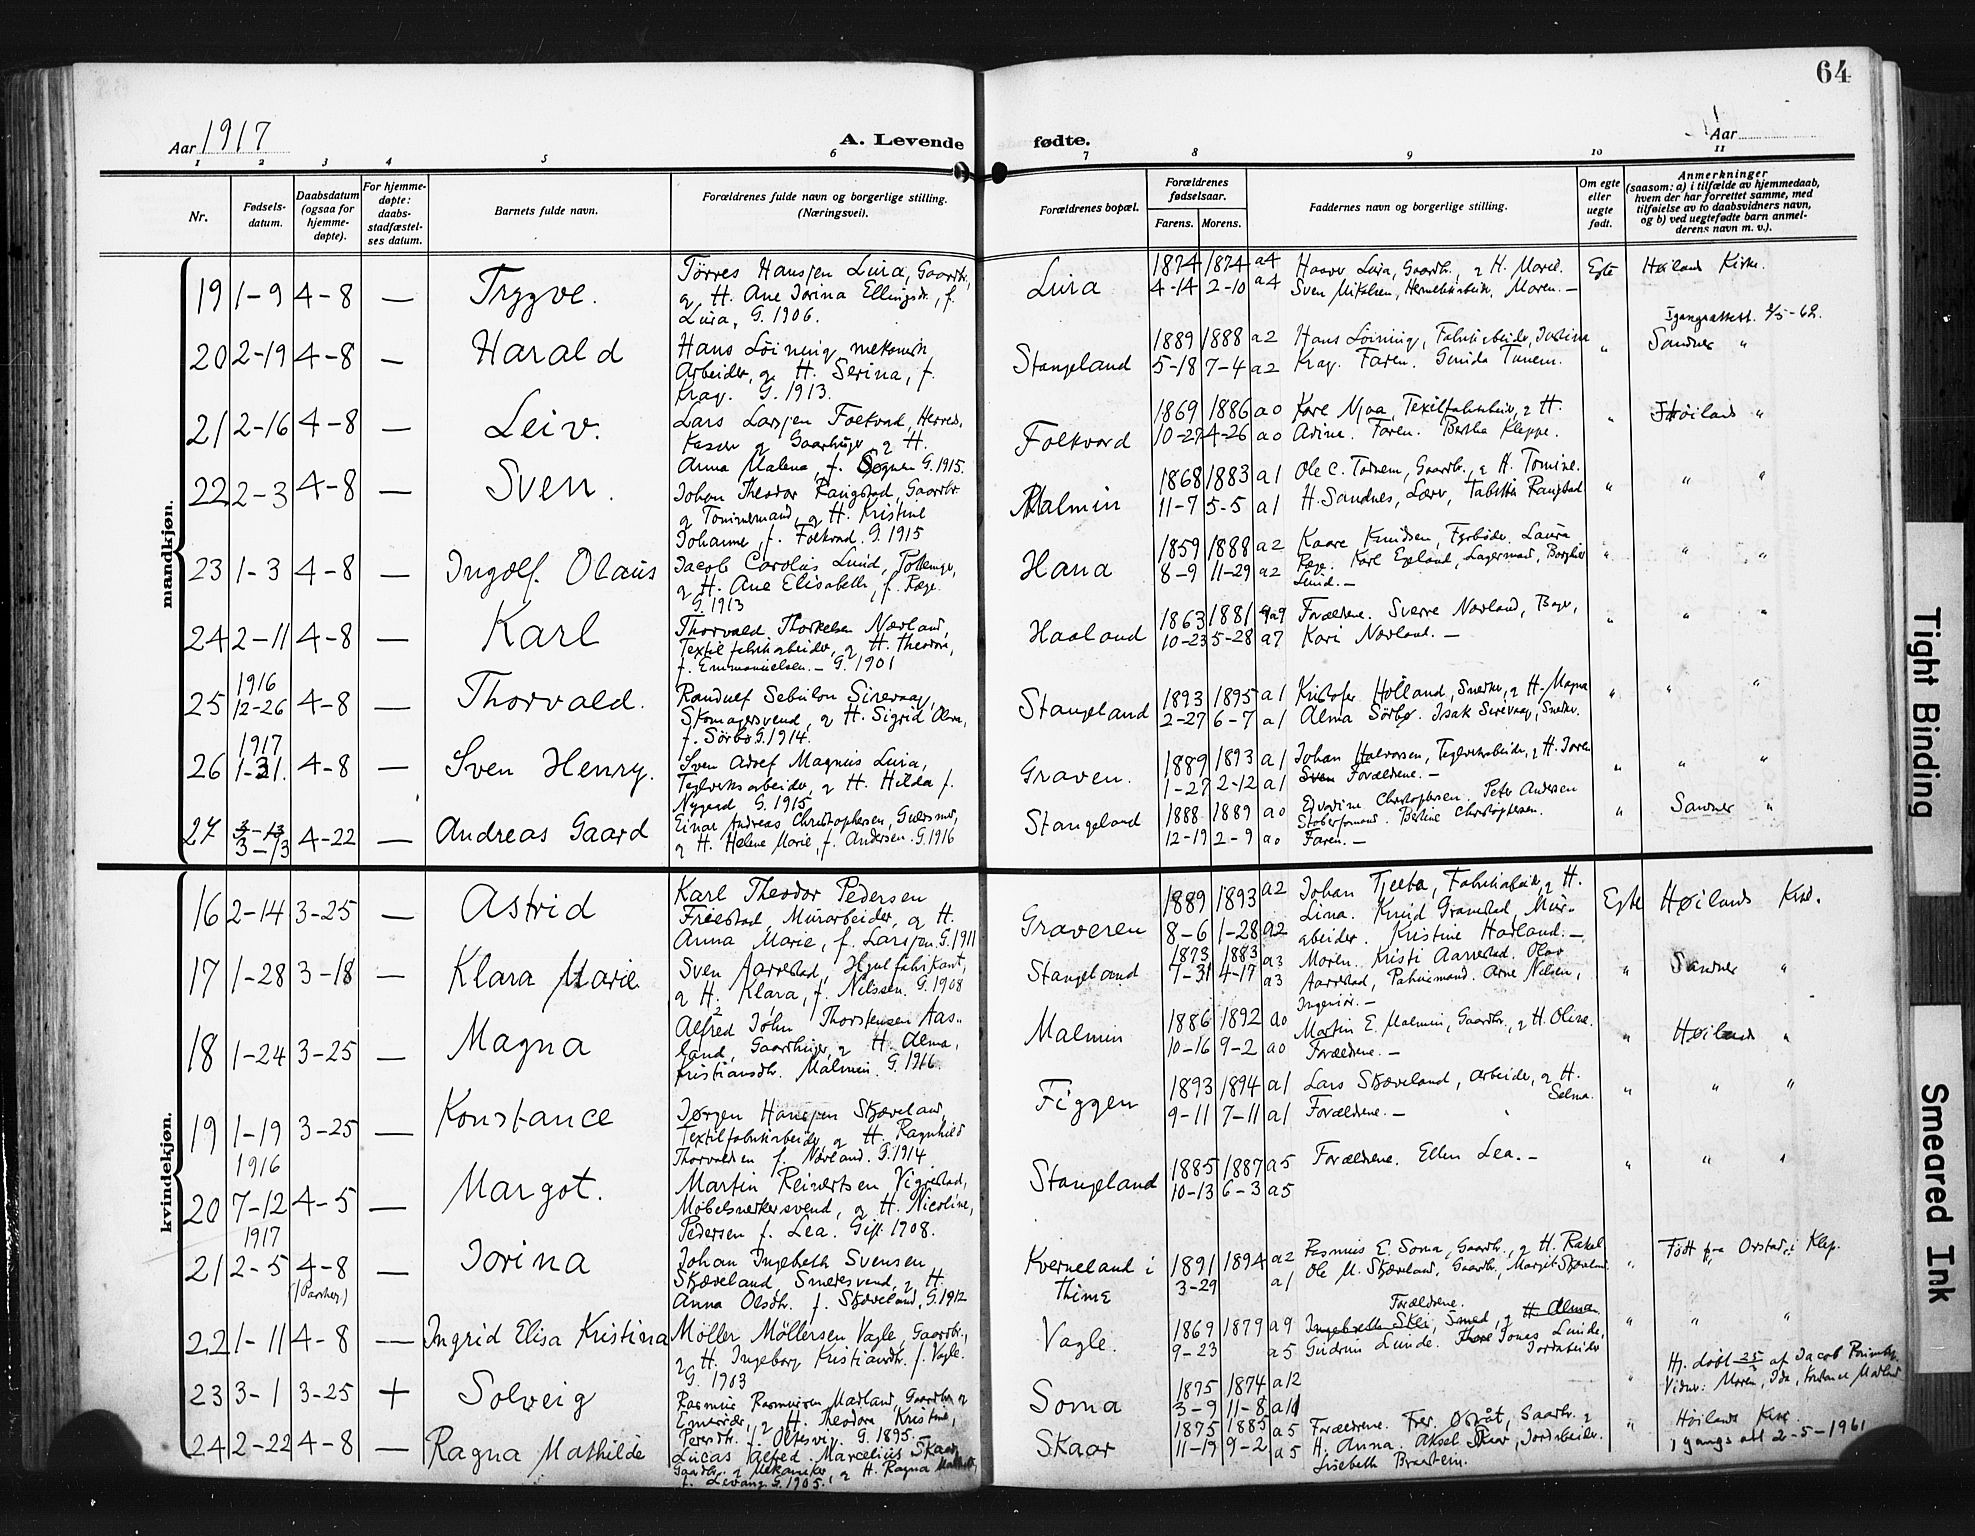 64
Aar 1917
A. Levende fødte.
Aar
1 2 3 4 5 6 7 8 9 10 11
Nr.
Fødsels-
datum.
Daabsdatum
(ogsaa for
hjemme-
døpte).
For hjemme-
døpte:
daabs-
stadfæstel-
ses datum.
Barnets fulde navn.
Forældrenes fulde navn og borgerlige stilling.
(Næringsvei).
Forældrenes bopæl.
Forældrenes
fødselsaar.
Farens. Morens.
Faddernes navn og borgerlige stilling.
Om egte
eller
uegte
født.
Anmerkninger
(saasom: a) i tilfælde av hjemmedaab,
hvem der har forrettet samme, med
tilføielse av to daabsvidners navn,
og b) ved uegtefødte barn anmel-
derens navn m. v.).
mandkjøn.
19 1-9 4-8 — Trygve.
Tørres Hansen Lura, Gaardbr.,
og H. Ane Jorina Ellingsdr., f.
Lura, G. 1906.
Lura
1874 1874 a4
4-14 2-10 a4
Haaver Lura, Gaardbr., og H. Maria.
Sven Mikalsen, Hermetikarbeider, Moren. —
Egte Høiland Kirke.
20 2-19 4-8 — Harald
Hans Löining, mekanisk
Arbeider, og H. Serina, f.
Krag. G. 1913.
Stangeland
1889 1888 a2
5-18 7-4 a2
Hans Löining, Fabrikarbeider, Justina
Krag. Faren. Gunida Tunem.
" Sandnes "
21 2-16 4-8 — Leiv.
Lars Larsen Folkvord, Herreds
Kasser og Gaardbruger, og H.
Anna Malena, f. Sognen G. 1915.
Folkvord
1869 1886 a0
10-27 4-26 a0
Kare Njaa, Textilfabrikarbeider, og H.
Adine. Faren. Bertha Kleppe.
" Høiland "
22 2-3 4-8 — Sven.
Johan Theodor Raugstad, Gaardbr.
og Tømmermand, og H. Kristine
Johanne, f. Folkvord. G. 1915
Malmin
1868 1883 a1
11-7 5-5 a1
Ole C. Tornem, Gaardbr., og H. Tomine.
H. Sandnes, Lærer, Tabitha Raugstad
" " "
23 1-3 4-8 — Ingolf Olaus
Jacob Carolus Lund, Pottemager,
og H. Ane Elisabeth, f. Pæge.
G. 1913
Hana
1859 1888 a2
8-9 11-29 a2
Kaare Knudsen, Fyrbøder. Laura
Pæge. Karl Egeland, Lagermand, Borghild
Lund. —
" " "
24 2-11 4-8 — Karl
Thorvald Thorkelsen Nærland,
Textilfabrikarbeider, og H. Theodora,
f. Emmanuelsen. — G. 1901
Haaland
1863 1881 a9
10-23 5-28 a7
Forældrene. Sverre Nærland, Bager,
Kari Nærland. —
" " "
25 1916 12-26 4-8 — Thorvald.
Randulf Sebulon Sirevaag,
Skomagersvend, og H. Sigrid Alma,
f. Sörbö G. 1914.
Stangeland
1893 1895 a1
2-27 6-7 a1
Kristofer Hölland, Snedker, og H. Magna
Alma Sörbø. Isak Sirevaag, Snedker.
" " "
26 1917 1-31. 4-8 — Sven Henry.
Sven Adolf Magnus Lura,
Teglverksarbeider, og H. Hilda f.
Nygaard G. 1915.
Graven.
1889 1893 a1
1-27 2-12 a1
Johan Halvorsen, Teglverksarbeider, og H. Joren
Sven Forældrene. —
" " "
27 3-13 3-13 4-22 — Andreas Gaard
Einar Andreas Christophersen, Guldsmed,
og H. Helene Marie, f. Andersen. G. 1916
Stangeland
1888 1889 a0
12-19 2-9 a0
Edvardine Christophersen. Peter Andersen
Støberformand. Bertine Christophersen.
Faren. —
" Sandnes "
kvindekjøn.
16 2-14 3-25 — Astrid
Karl Theodor Pedersen
Freiestad, Murarbeider, og H.
Anna Marie, f. Larsen. G. 1911
Graveren
1889 1893 a2
8-6 1-28 a2
Johan Tjelta, Fabrikarbeider, og H.
Lina. Knud Granestad, Mur-
arbeider. Kristine Harland. —
Egte Høilands Kirke.
17 1-28 3-18 — Klara Marie
Sven Aarrestad, Hjulfabrikant,
og H. Klara, f. Nilssen. G. 1908
Stangeland
1873 1883 a3
7-31 4-17 a3
Moren. Kristi Aarrestad. Olav
Aarrestad, Arne Nilsen,
Ingeniør. —
" Sandnes "
18 1-24 3-25 — Magna
Alfred John Thorstensen Aas-
land, Gaardbruger, og H. Alma,
Kristiansdtr. Malmin. G. 1916.
Malmin
1886 1892 a0
10-16 9-2 a0
Martin E. Malmin, Gaardbr., og H. Oline.
Forældrene. —
" Høiland "
19 1-19 3-25 — Konstance
Jørgen Hansen Skjæveland,
Textilfabrikarbeider, og H. Ragnhild
Thorvaldsen f. Nærland. G. 1914
Figgen
1893 1894 a1
9-11 7-11 a1
Lars Skjæveland, Arbeider, og H.
Selma.
Forældrene. —
" " "
20 1916 7-12 4-5 — Margot.
Martin Reinertsen Vigrestad,
Møbelsnekkersvend, og H. Nicoline,
Pedersen f. Lea. Gift 1908.
Stangeland
1885 1887 a5
10-13 6-3 a5
Forældrene. Ellen Lea. —
" " "
21 1917 2-5 4-8 — Jorina
Johan Ingebreth Svensen
Skjæveland Smedesvend, og H.
Anna Olsdtr. f. Skjæveland, G. 1912
Kverneland i
Thime
1891 1894 a2
3-29 a1
Rasmus E. Soma, Gaardbr., og H. Rakel
Ole M. Skjæveland, Gaardbr., Margit Skjæveland
" Født paa Orstad i Klep.
22 1-11 4-8 — Ingrid Elisa Kristina
Möller Möllersen Vagle, Gaardbr.,
og H. Ingeborg Kristiansdtr. f. Vagle.
G. 1903
Vagle.
1869 1879 a9
9-23 a5
Forældrene.
Ingebreth Skei, Smed, og H. Alma
Gudrun Lunde. Jonas Lunde,
Jordarbeider
" " "
23 3-1 3-25 + Solveig
Rasmus Rasmussen Madland, Gaardbr. og
og H. Theodora Kristine,
Pedersdtr. f. Oltesvig. G. 1895.
Soma
1875 1874 a12
3-9 11-8 a11
" Hj. døbt 25/3 af Jacob
Vidner: Moren, Ida, Konstance Madland
24 2-22 4-8 — Ragna Mathilde
Lucas Alfred Marcelius Skaar,
Gaardbr. og Mekaniker, og H. Ragna
f. Levang G. 1905.
Skaar
1875 1885 a5
11-19 9-2 a5
Forældrene. Gaardbr. og
H. Anna. Aksel Skaar, Jordarbeider.
Lisebeth Braastein.
" Høilands Kirke
1 gangs att 2-5-1961
Tight Binding
Smeared Ink